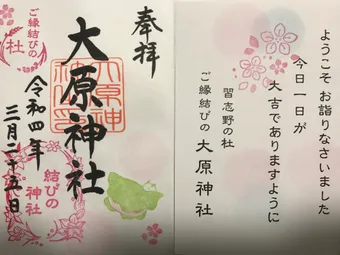 ようこそ お詣りなさいました
今日一日が
大吉でありますように
習志野の杜
ご縁結びの 大原神社
奉拝
大原神社
令和四年
三月二十五日
ご縁結びの
杜
結びの
神社